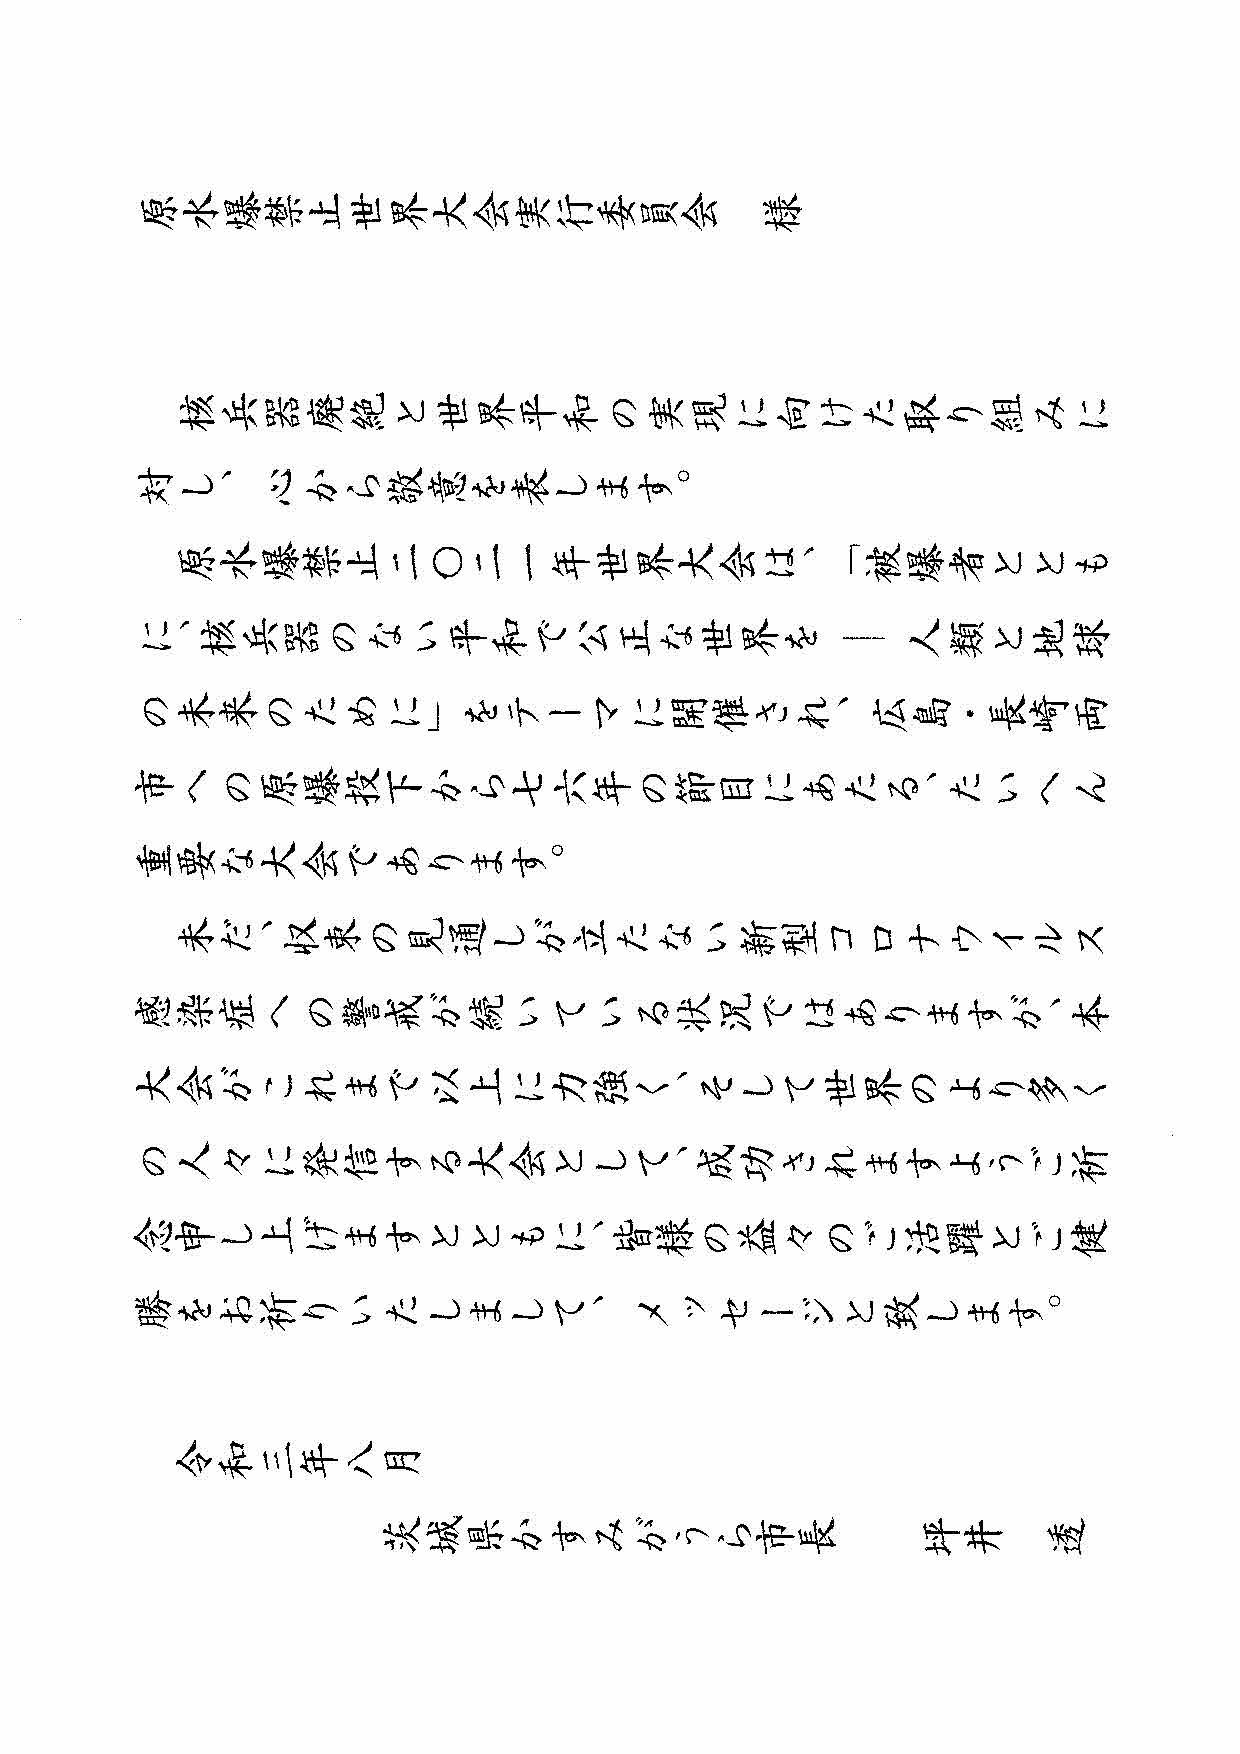 原水爆禁止世界大会実行委員会　様
核兵器廃絶と世界平和の実現に向けた取り組みに
対し、心から敬意を表します。
原水爆禁止二〇二一年世界大会は、「被爆者ととも
に、核兵器のない平和で公正な世界を ― 人類と地球
の未来のために」をテーマに開催され、広島・長崎両
市への原爆投下から七六年の節目にあたる、たいへん
重要な大会であります。
未だ、収束の見通しが立たない新型コロナウイルス
感染症への警戒が続いている状況ではありますが、本
大会がこれまで以上に力強く、そして世界のより多く
の人々に発信する大会として、成功されますようご祈
念申し上げますとともに、皆様の益々のご活躍とご健
勝をお祈りいたしまして、メッセージと致します。
令和三年八月
茨城県かすみがうら市長　坪井　透